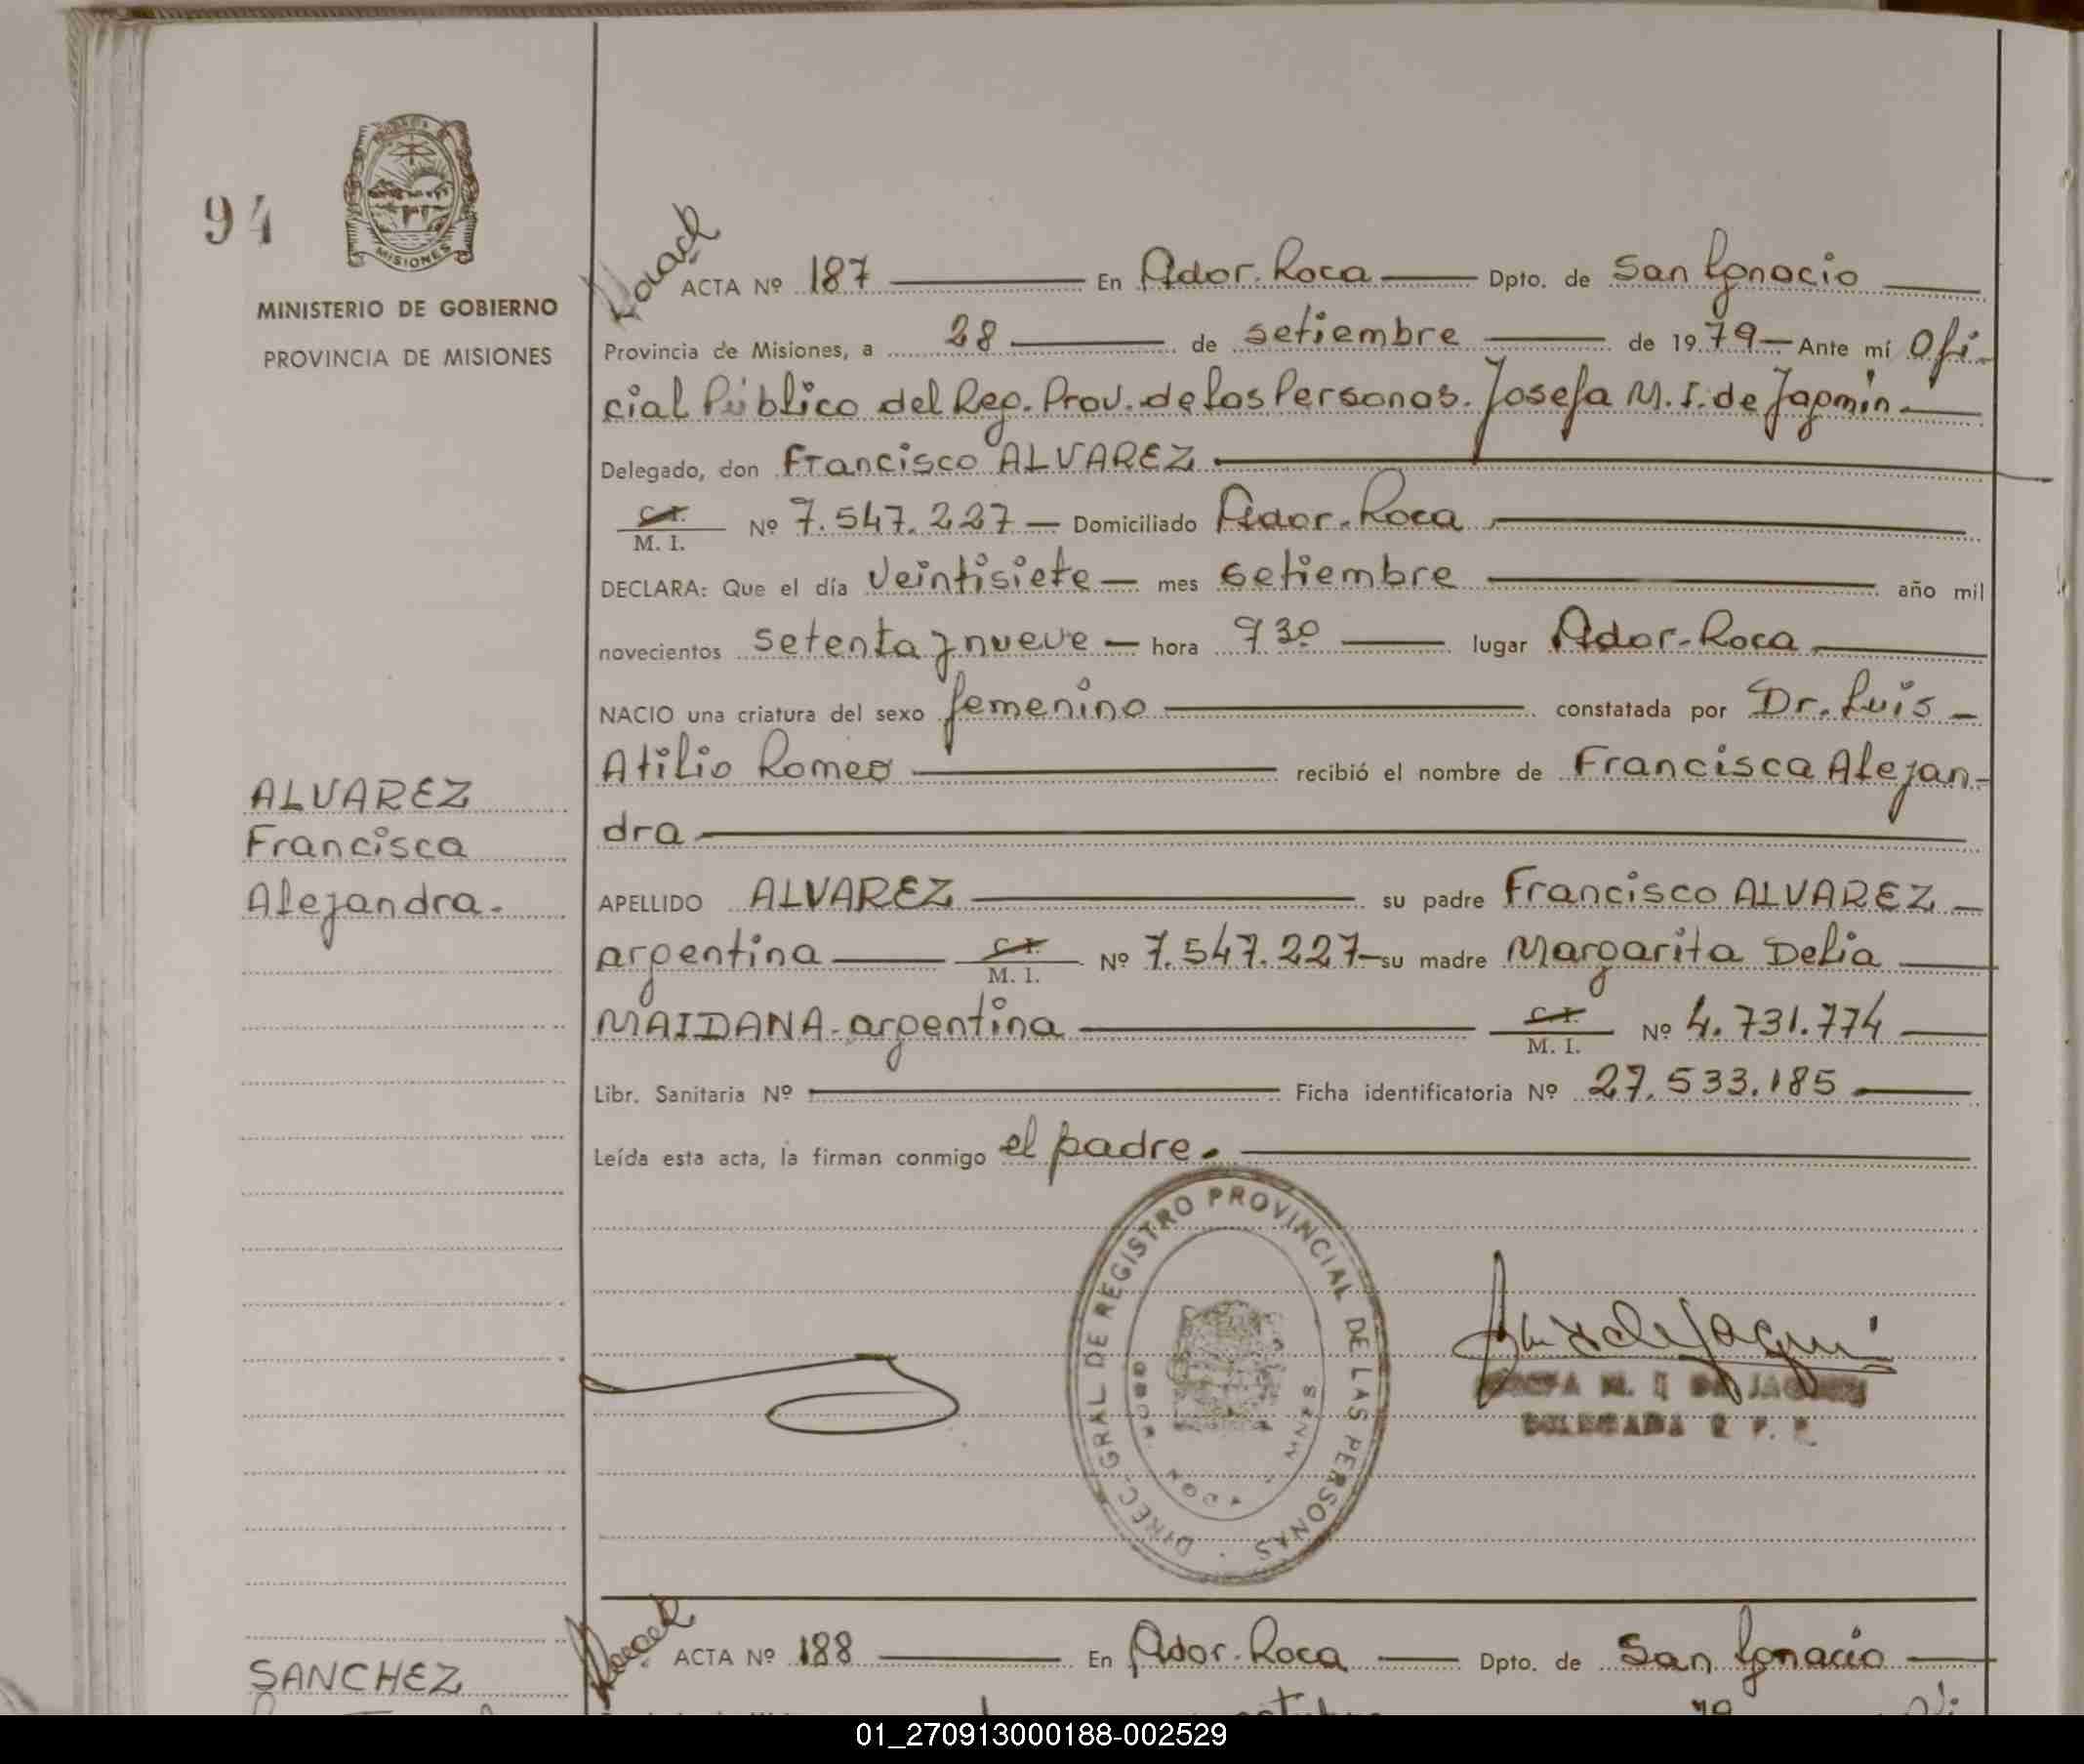 94
MISIONES
MINISTERIO DE GOBIERNO
PROVINCIA DE MISIONES
ACTA Nº 187 En Ador. Roca Dpto. de San Ignacio
Provincia de Misiones, a 28 de setiembre de 1979 Ante mí Ofi-
cial Público del Reg. Prov. de las Personas. Josefa M. I. de Jaqmin
Delegado, don Francisco ALVAREZ
C. I.
M. I. Nº 7.547.227 Domiciliado Ador. Roca
DECLARA: Que el día Veintisiete mes setiembre año mil
novecientos setenta y nueve hora 9 30 lugar Ador. Roca
NACIO una criatura del sexo femenino constatada por Dr. Luis
Atilio Romeo recibió el nombre de Francisca Alejan-
dra
ALVAREZ
Francisca
Alejandra.
APELLIDO ALVAREZ su padre Francisco ALVAREZ
argentina C. I. M. I. Nº 7.547.227 su madre Margarita Delia
MAIDANA. argentina C. I. M. I. Nº 4.731.774
Libr. Sanitaria Nº Ficha identificatoria Nº 27.533.185
Leída esta acta, la firman conmigo el padre.
DIREC. GRAL DE REGISTRO PROVINCIAL DE LAS PERSONAS
M. I. DE
DELEGADA R. P. P.
ACTA Nº 188 En Ador. Roca Dpto. de San Ignacio
SANCHEZ
01_270913000188-002529